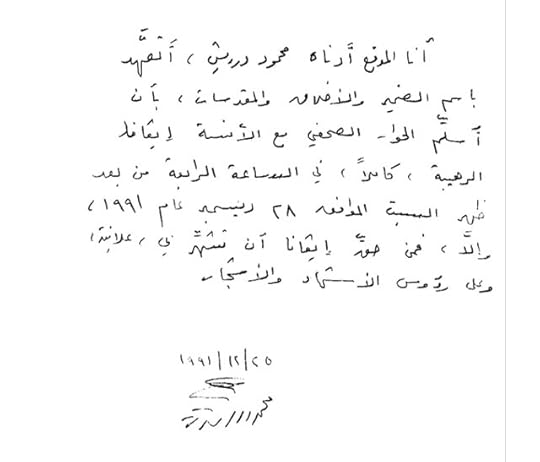 أنا الموقع أدناه محمود درويش، أتعهَّد
باسم الضمير والأخلاق والمقدسات، بأن
أسلِّم الحوار الصحفي مع الآنسة إيڤانا
الرهيبة، كاملاً، في الساعة الرابعة من بعد
ظهر السبت الموافق ٢٨ ديسمبر عام ١٩٩١،
وإلَّا، فمن حقِّ إيڤانا أن تشهِّر بي، علانية،
وعلى رؤوس الأشهاد والأشجار
١٩٩١/١٢/٢٥
محمود درويش